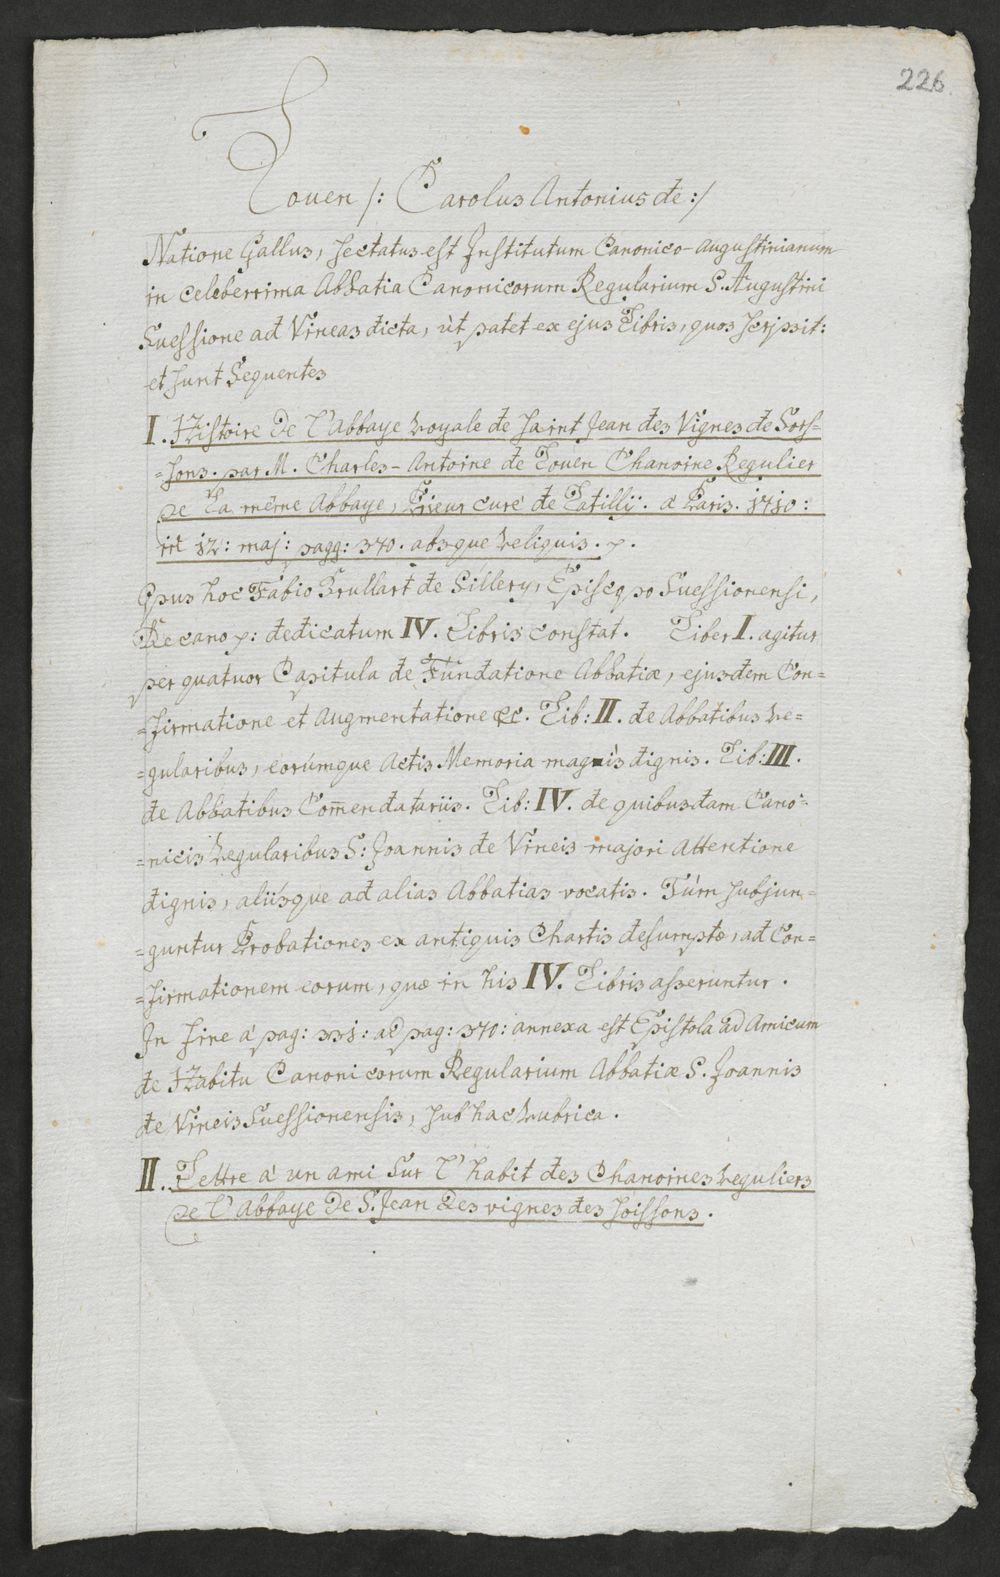 226
Louen /: Carolus Antonius de :/
Natione Gallus, sectatus est Institutum Canonico-Augustinianum
in celeberrima Abbatia Canonicorum Regularium S. Augustini
Suessione ad Vineas dicta, ùt patet ex ejus Libris, quos scripsit:
et sunt Sequentes
I. Histoire De l'Abbaye royale de saint Jean des Vignes de Sois=
=sons. par M. Charles-Antoine de Louen Chanoine Regulier
De La même Abbaye, Prieur curé de Latilly. a Paris. 1710:
in 12: maj: pagg: 370. absque reliquis. p.
Opus hoc Fabio Brullart de Sillery, Episcopo Suessionensi,
Decano p: dedicatum IV. Libris constat. Liber I. agitur
per quatuor Capitula de Fundatione Abbatiæ, ejusdem Con=
=firmatione et Augmentatione &c. Lib: II. de Abbatibus re=
=gularibus, eorúmque Actis Memoria magnis dignis. Lib: III.
de Abbatibus Com̄endatariis. Lib: IV. de quibusdam Cano=
=nicis regularibus S: Joannis de Vineis majori Attentione
dignis, aliísque ad alias Abbatias vocatis. Túm subjun=
=guntur Probationes ex antiquis Chartis desumptæ, ad Con=
=firmationem eorum, quæ in his IV. Libris asseruntur.
In fine à pag: 331: ad pag: 370: annexa est Epistola ad Amicum
de Habitu Canonicorum Regularium Abbatiæ S. Joannis
de Vineis Suessionensis, sub hac rubrica.
II. Lettre a un ami sur l'habit des Chanoines reguliers
De l'Abbaye De S. Jean Des vignes des soissons.